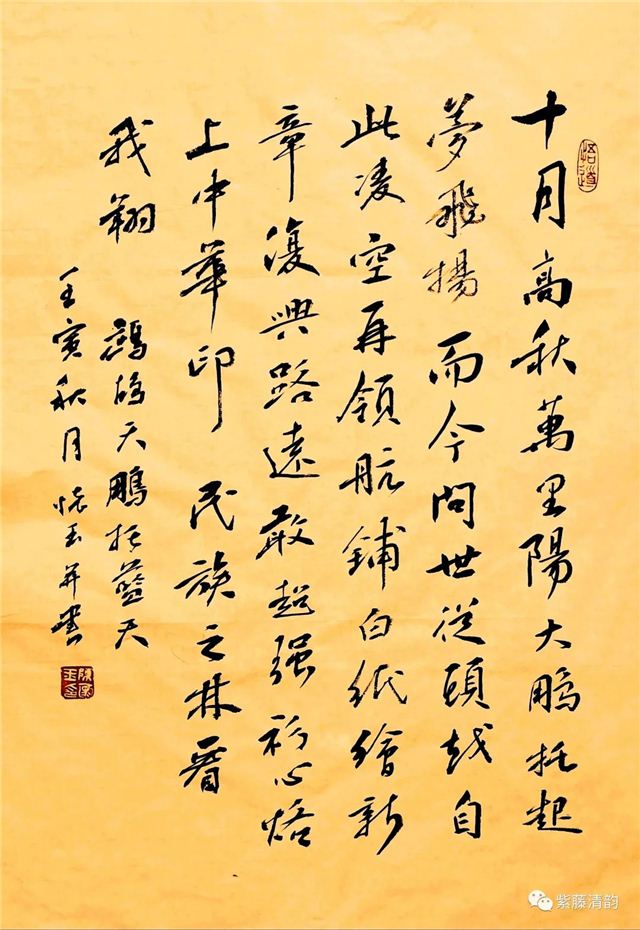 十月高秋萬里陽大鵬托起
夢飛揚而今問世從頭越自
此凌空再領航鋪白紙繪新
章復興路遠敢超强初心烙
上中華印民族之林看
我翔
鷓鴣天鵬托藍天
壬寅秋月懷玉并書
悟道
紫藤清韵